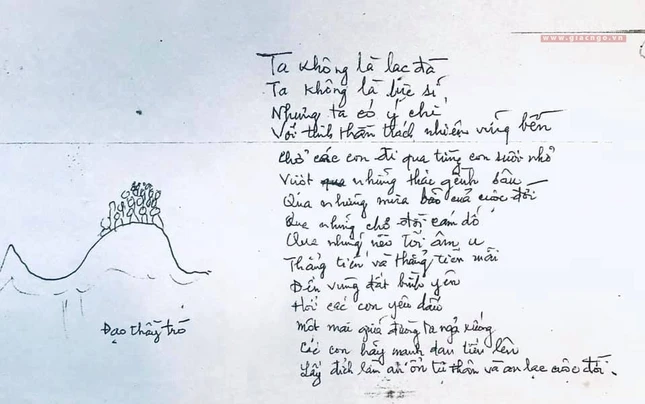 www.giacngo.vn
Ta không là lạc đà
Ta không là lực sĩ
Nhưng ta có ý chí
Với tinh thần trách nhiên vững bền
Chở các con đi qua từng con suối nhỏ
Vượt qua những thác gềnh
Qua những mưa bão của cuộc đời
Qua những chỗ đời cám dỗ
Qua những nẻo tối âm u
Thẳng tiến và thẳng tiến mãi
Đến vùng đất bình yên
Hỡi các con yêu dấu
Một mai quá đường ta ngã xuống
Các con hãy mạnh dạn tiến lên
Lấy đích làm an ổn tự thân và an lạc cuộc đời.
Đạo thầy trò